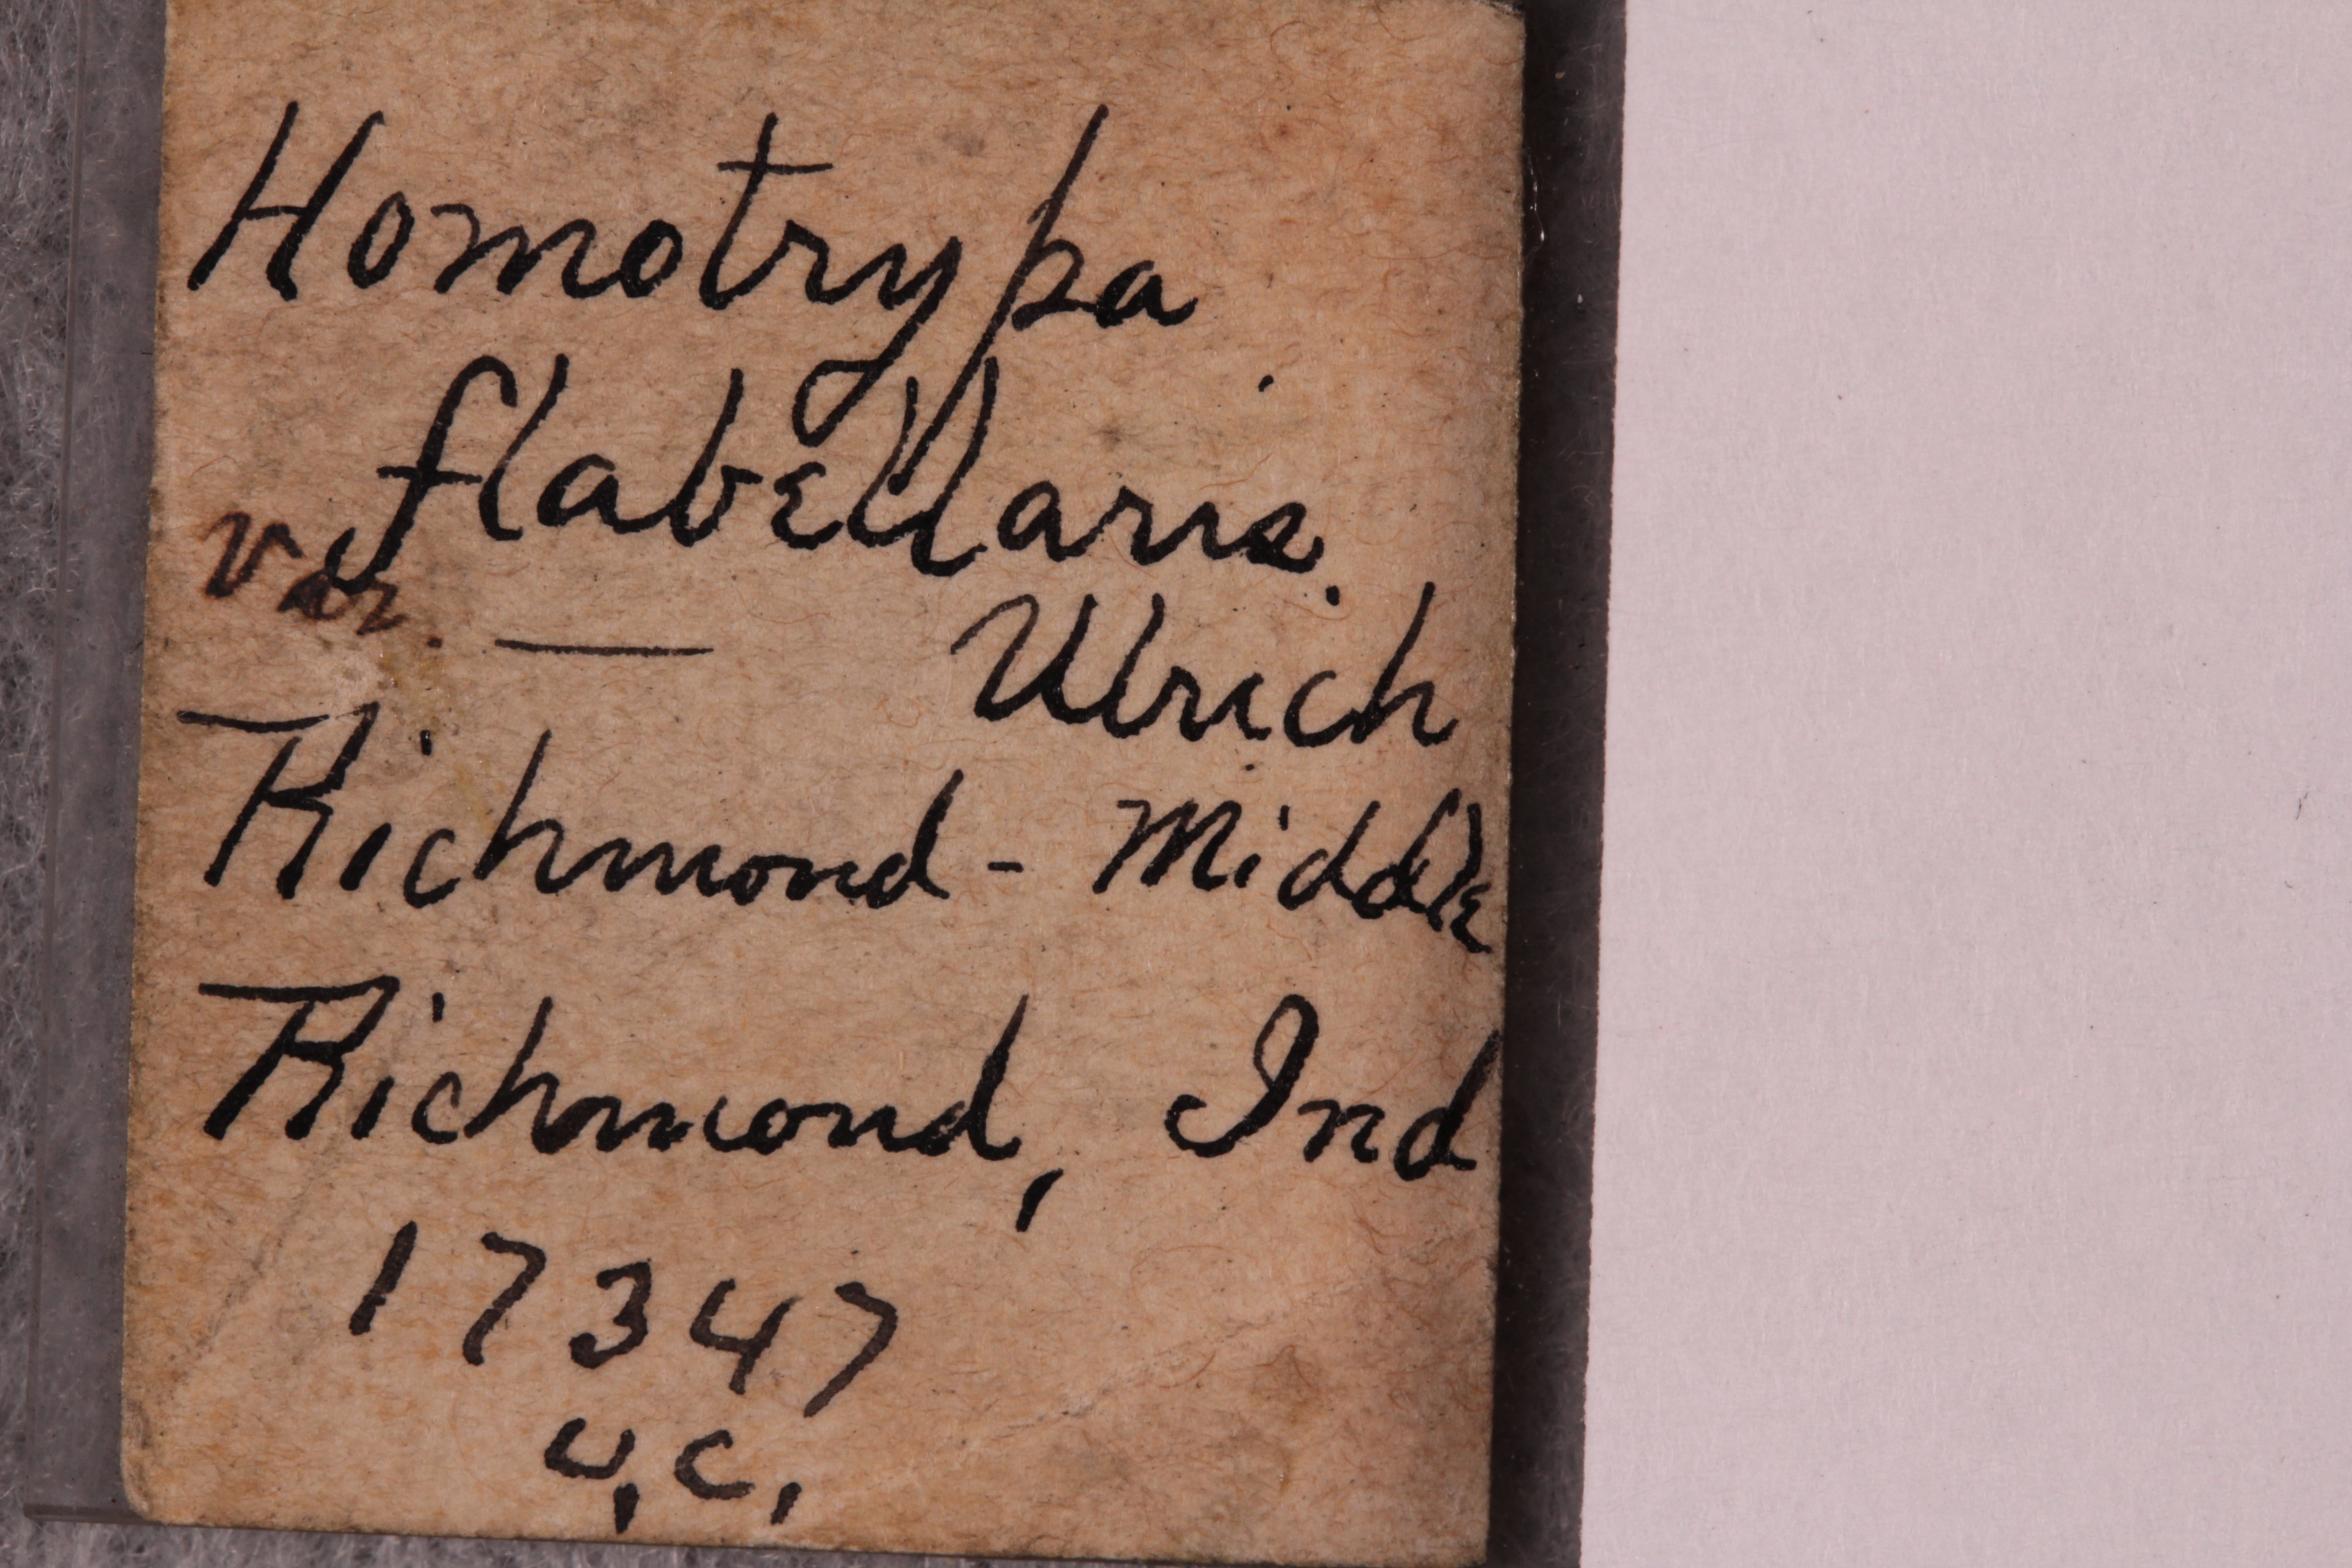 Homotrypa
flabellaris.
var. — Ulrich
Richmond - Middle
Richmond, Ind
17347
U.C.